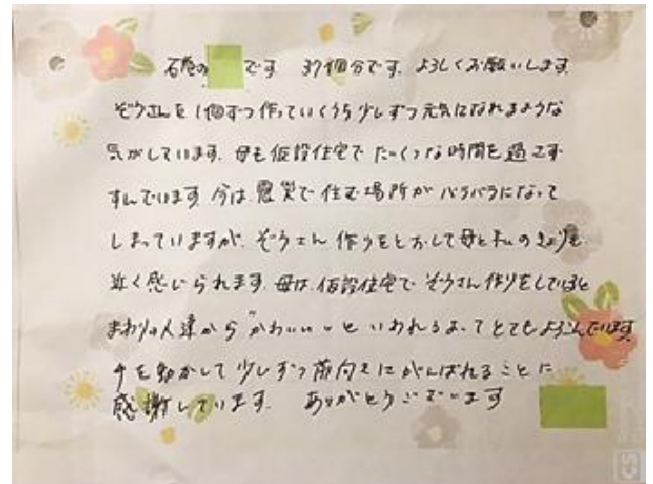 石巻の です 37個分です。よろしくお願いします
ぞうさんを1個ずつ作っていくうち少しずつ元気になれるような
気がしています。母も仮設住宅でたいくつな時間を過ごさず
すんでいます 今は震災で住む場所がバラバラになって
しまっていますが、ぞうさん作りをとおして母と私のきょりを
近く感じられます。母は、仮設住宅でぞうさん作りをしていると
まわりの人達から"かわいい"といわれるよってとてもよろこんでいます
手を動かして少しずつ前向きにがんばれることに
感謝しています。ありがとうございます